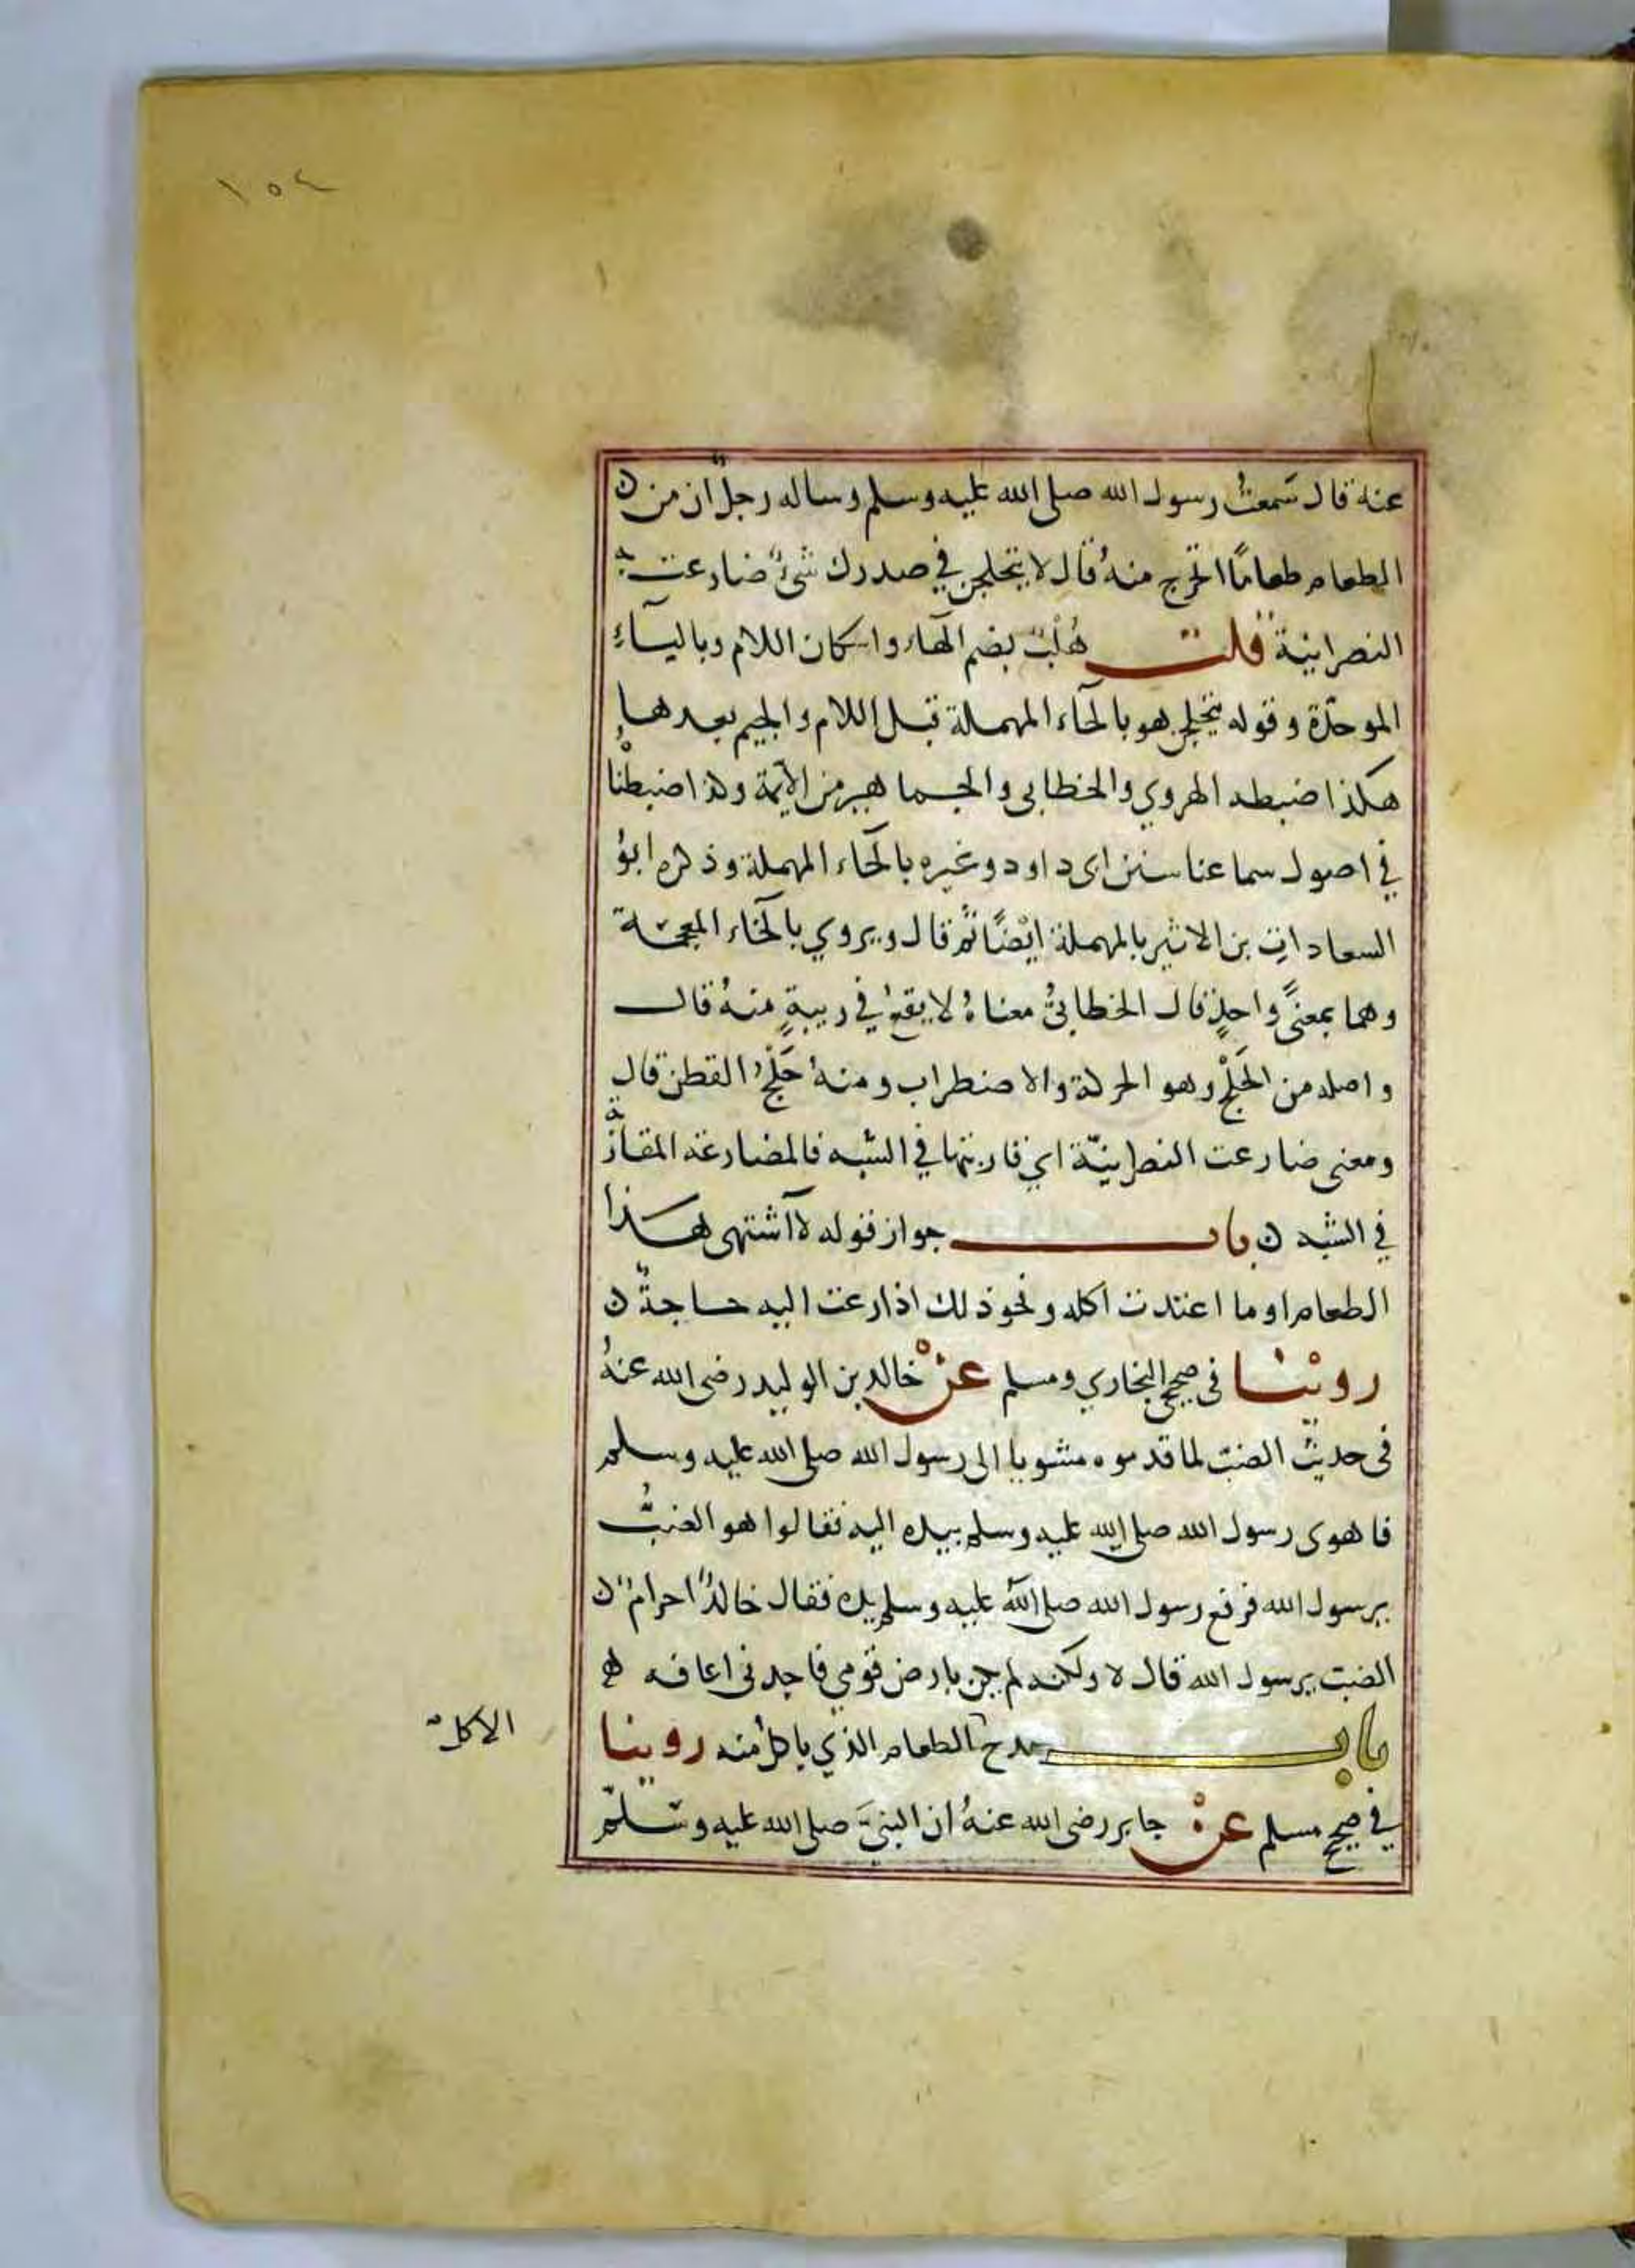 ١٥٤
عنه قال سَمعتُ رسول الله صلى الله عليه وسلم وساله رجلٌ ان من
الطعام طعامًا اتحرج منهُ قال لا يتحلجن في صدرك شيءٌ ضارعت به
النصرانية قلت هُلْبٌ بضم الهاء واسكان اللام وبالبآءِ
الموحدّة وقوله يتحلجن هو بالحآء المهملة قبل اللام والجيم بعدها
هكذا ضبطه الهروي والخطابى والجماهير من الآيمة وكذا ضبطْناهُ
في اصول سماعنا سنن ابى داود وغيره بالحَآء المهملة وذكره ابوُ
السعاداتِ بن الاثير بالمهملة ايْضًا ثُم قال ويروي بالخَآء المعجمة
وهما بمعنًى واحدٍ قال الخطابىُّ معناهُ لا يقعُ في ريبةٍ منهُ قال
واصله من الحَلْج وهو الحركة والاضطراب ومنهُ حَلْجُ القطن قال
ومعنى ضارعت النصرانيّة اي قاربتها في الشبه فالمضارعة المقاربة
في الشبه ن باب جواز قوله لآ اشتهى هذا
الطعام او ما اعتدت اكله ونحو ذلك اذا رعت اليه حاجةٌ ن
رويْنا فى صحيحى البخاري ومسلم عنْ خالد بن الوليد رضى الله عنهُ
فى حديث الضبّ لما قدموه مشويا الى رسول الله صلى الله عليه وسلم
فاهوى رسول الله صلى الله عليه وسلم بيده اليه فقالوا هو الضبُّ
يرسول الله فرفع رسول الله صلى الله عليه وسلم يده فقال خالدٌ احرامٌ ن
الضبّ يرسول الله قال لا ولكنه لم يكن بارض قومي فاجدنى اعافه
باب مدح الطعام الذي ياكل منه روينا
الاكل
في صحيح مسلم عنْ جابر رضى الله عنهُ ان النبيَّ صلى الله عليه وسَلّم